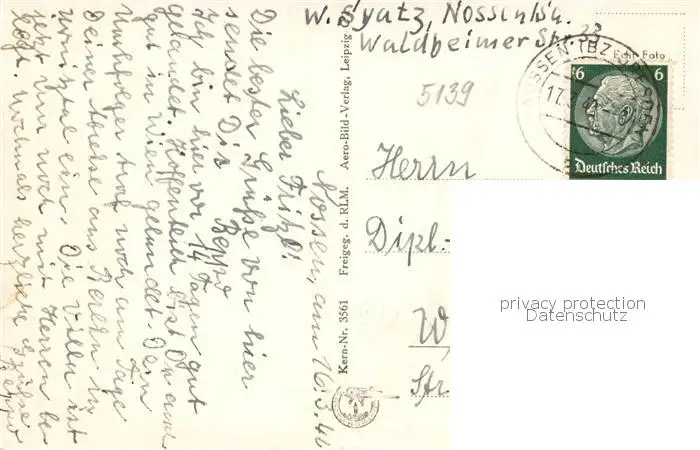 W. Syatz, Nossen/Sa.
Waldheimer Str. 23
Echt Foto
NOSSEN (BZ DRESDEN)
17
6 6
Deutsches Reich
5139
Herrn
Dipl.-
W
Str
privacy protection
Datenschutz
Kern-Nr. 3561 Freigeg. d. RLM. Aero-Bild-Verlag, Leipzig
Nossen, am 16.3.40
Lieber Fritzl!
Die besten Grüße von hier
sendet Dir Beppo
Ich bin hier vor 14 Tagen gut
gelandet. Hoffentlich bist Du auch
gut in Wien gelandet. Dein
Nachfolger traf noch am Tage
Deiner Abreise aus Berlin in
ein. Die Villa ist
jetzt nur noch mit Herren be
legt. Nochmals herzliche Grüße
Beppo